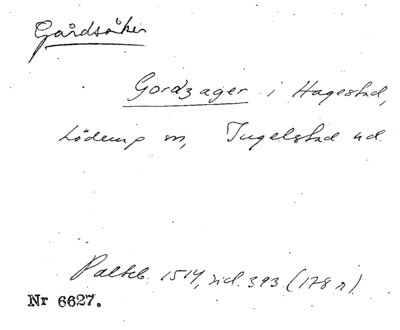 Gårdsåker
Gordzager i Hagestad,
Löderup sn, Ingelstad hd.
Palteb. 1514, sid. 393 (178 r)
Nr 6627.